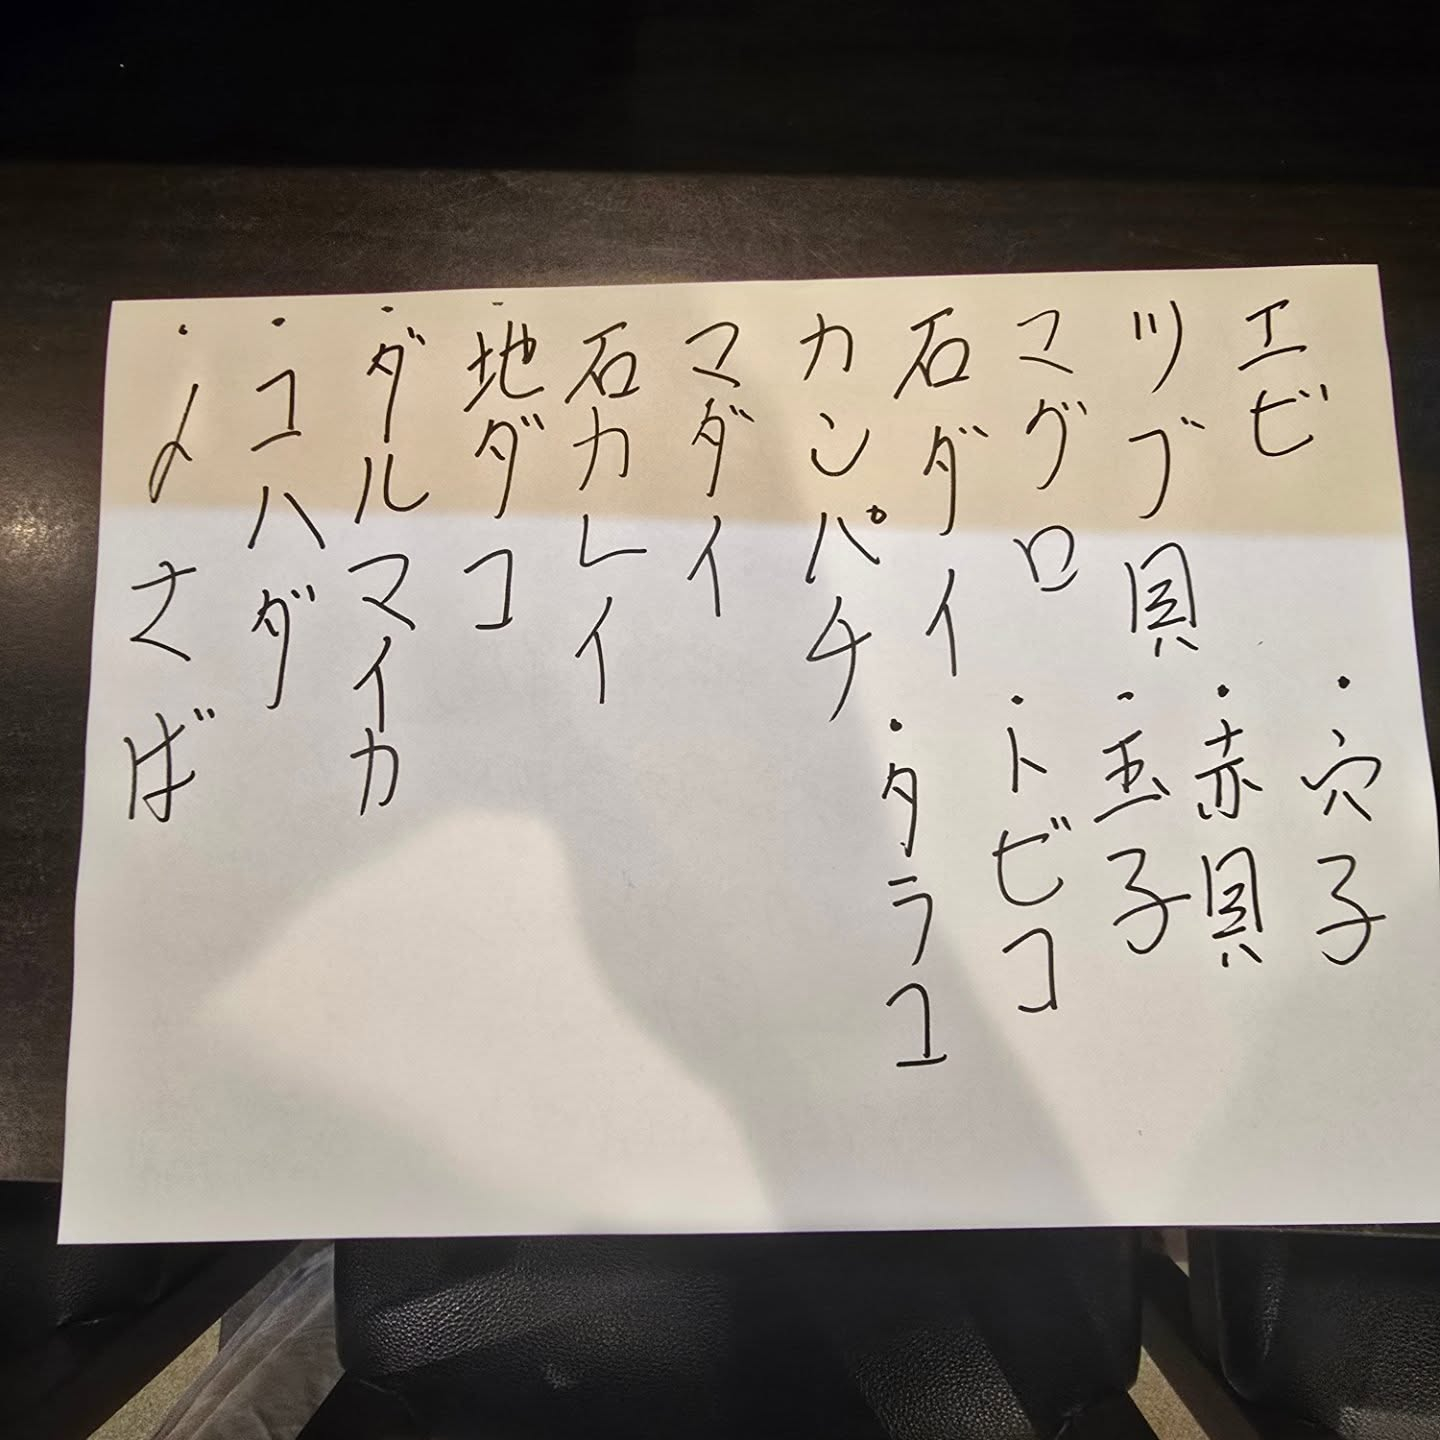 エビ
ツブ貝
マグロ
石ダイ
カンパチ
マダイ
石カレイ
・地ダコ
・ダルマイカ
・コハダ
・〆さば
・穴子
・赤貝
・玉子
・トビコ
・タラコ